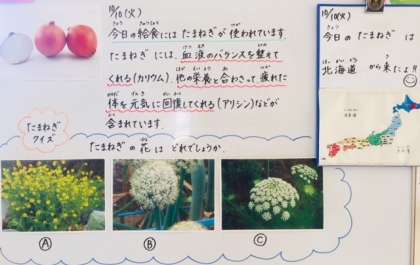 10/10(火)
今日の給食にはたまねぎが使われています。
たまねぎには、血液のバランスを整えて
くれる(カリウム)、他の栄養と合わさって疲れた
体を元気に回復してくれる(アリシン)などが
含まれています。
たまねぎ
クイズ
たまねぎの花は どれでしょうか。
A
B
C
10/10(火)
今日のたまねぎ は
北海道 から来たよ!!